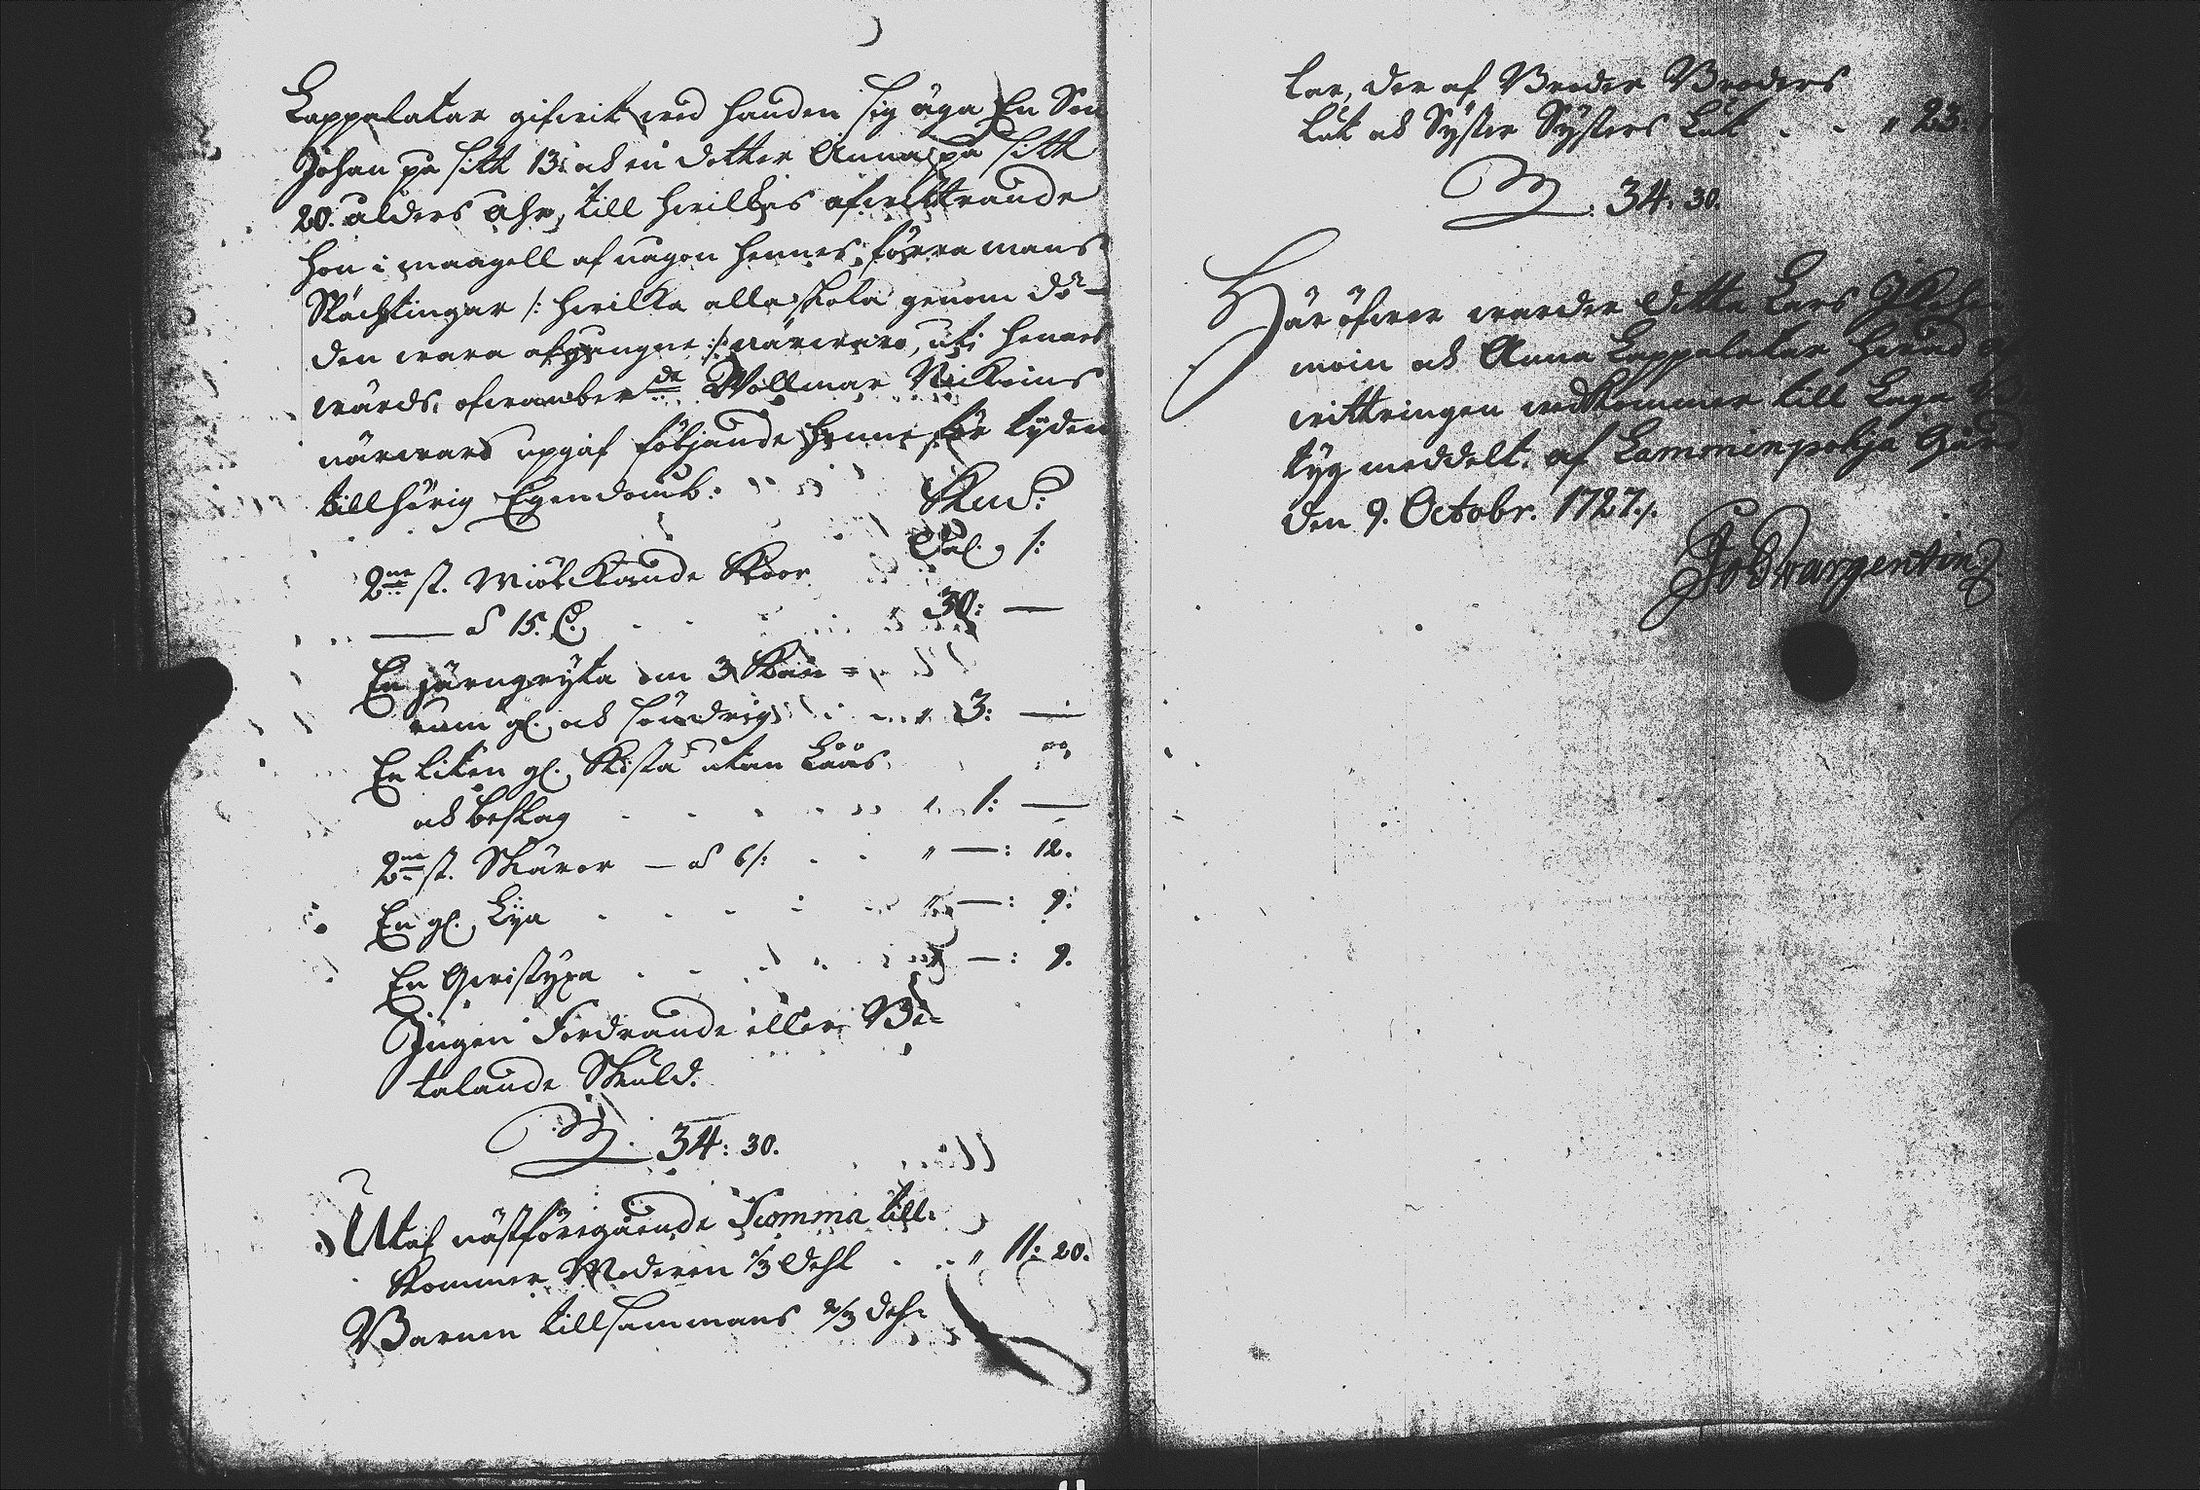 Lappalatar gifwit wed handen sig äga En Son
Johan på sitt 13: och en dotter Anna på sitt
20. ålders åhr, till hwilkas afwittrande
hon i maagell af någon hennes förra mans
Slächtingar /: hwilka alla skola genom dö-
den wara afgångne :/ närwaro, uti hennes
wärds, ofwanber:de Wollmar Nickeins
närwaro upgaf föliande henne för tyden
tillhörig Egendomb:
Sk..:
Dal. /:
2:ne st. Miölkande Koor
— à 15. D. . . " 30: —
En järngryta om 3 Kan=
num gl. och söndrig . . " 3: —
En liten gl. Kista utan Låås
och beslag . . . " 1: —
2:ne st. Skäror — à 6 /: . . " —: 12.
En gl. Lya . . . " —: 9.
En Qwistyxa . . . " —: 9.
Ingen Fordrande eller Be=
talande Skuld.
S. 34: 30.
Utaf nästföregående Summa till=
kommer Moderen 1/3 Dehl . . " 11: 20.
Barnen tillsammans 2/3 deh=
lar, der af Broder Broders
Lut och Syster Systers Lut . . " 23:
S. 34: 30.
Här öfwer warder Ditto Lars
moin och Anna Lappalatar hwad
wittringen wedkommer till Laga
tyg meddelt. af Lamminpohja Gård
den 9. Octobr. 1727./.
Jo Wargentin